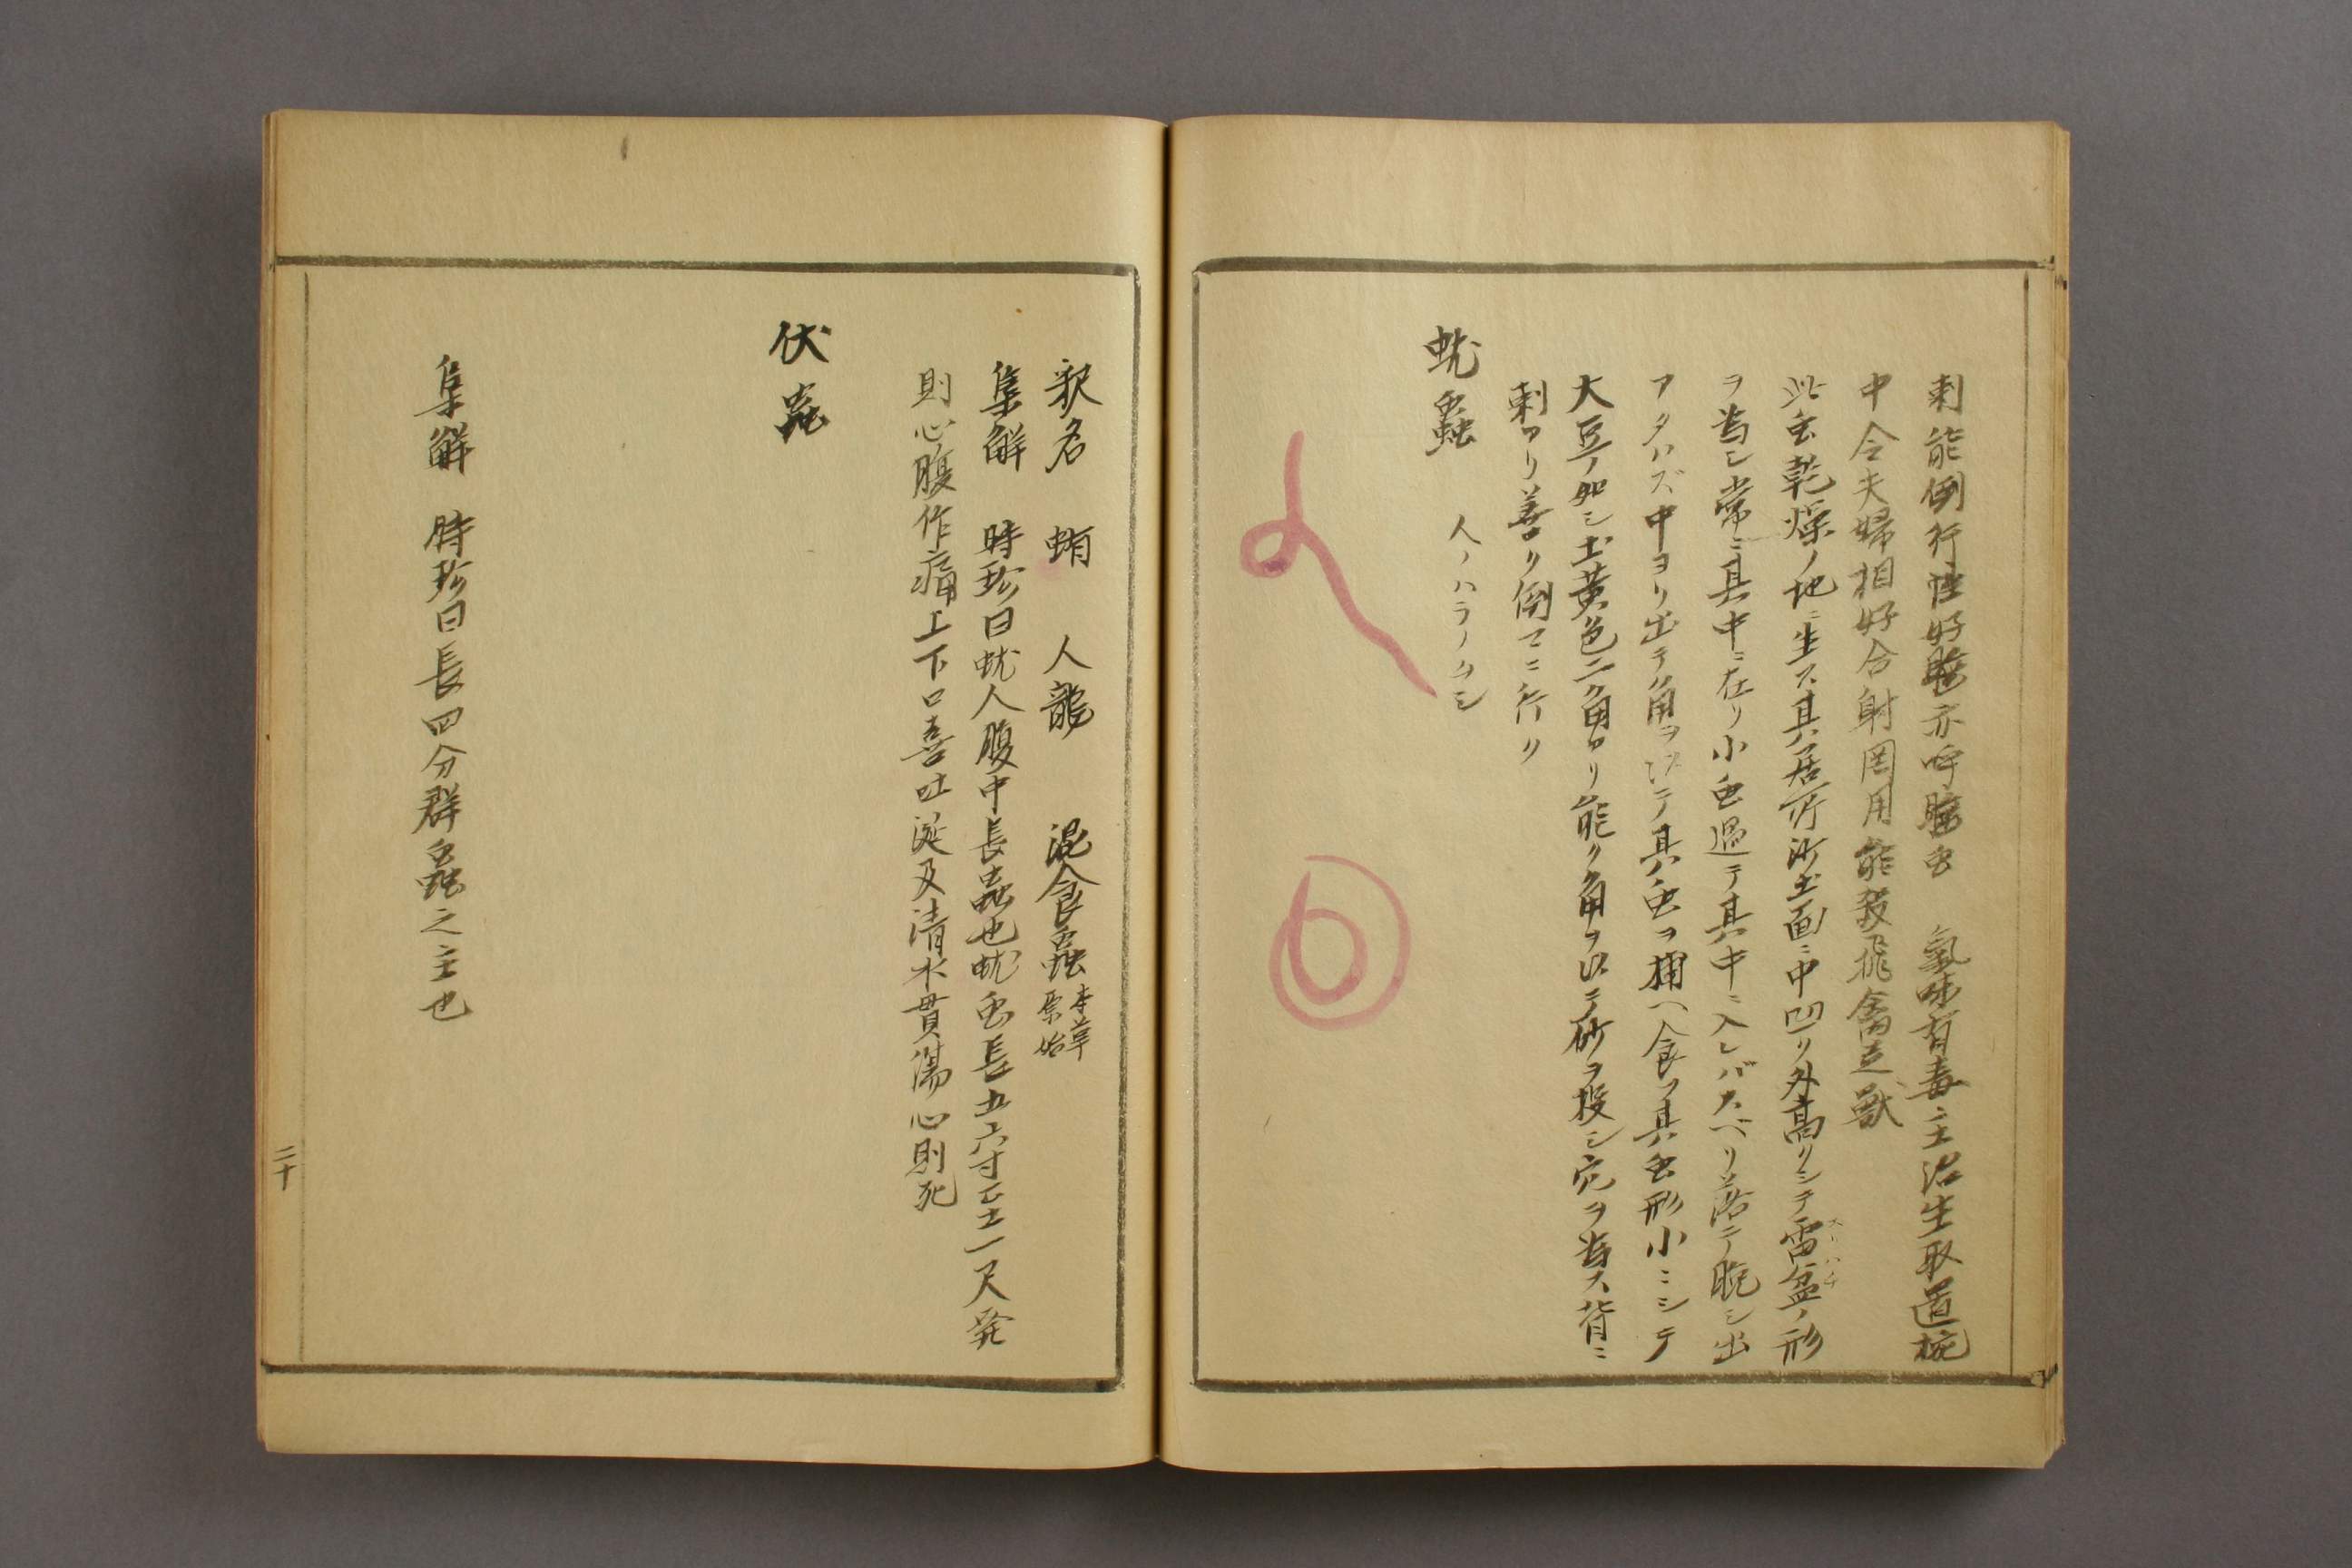 刺能倒行性好睡亦呼睡虫　氣味有毒ニ主治生取置枕
中令夫婦相好合射罔用能殺飛禽走獣
此虫乾燥ノ地ニ生ス其居所沙土面ニ中凹リ外高クシテ雷盆ノ形
ヲ為シ常ニ其中ニ在リ小虫過テ其中ニ入レバスベリ落テ脱シ出
アタハズ中ヨリ出テ角ヲ以テ其虫ヲ捕ヘ食フ其虫形小ニシテ
大豆ノ如シ土黄色二角アリ能ク角ヲ以テ砂ヲ投シ穴ヲ為ス背ニ
刺アリ善ク倒マニ行ク
蚘蟲　人ノハラノムシ
釈名　蛕　人龍　混食蟲 本草原始
集解　時珍曰蚘人腹中長蟲也蚘虫長五六寸至一尺発
則心腹作痛上下口喜吐涎及清水貫傷心則死
伏蟲
集解　時珍曰長四分群蟲之主也
二十